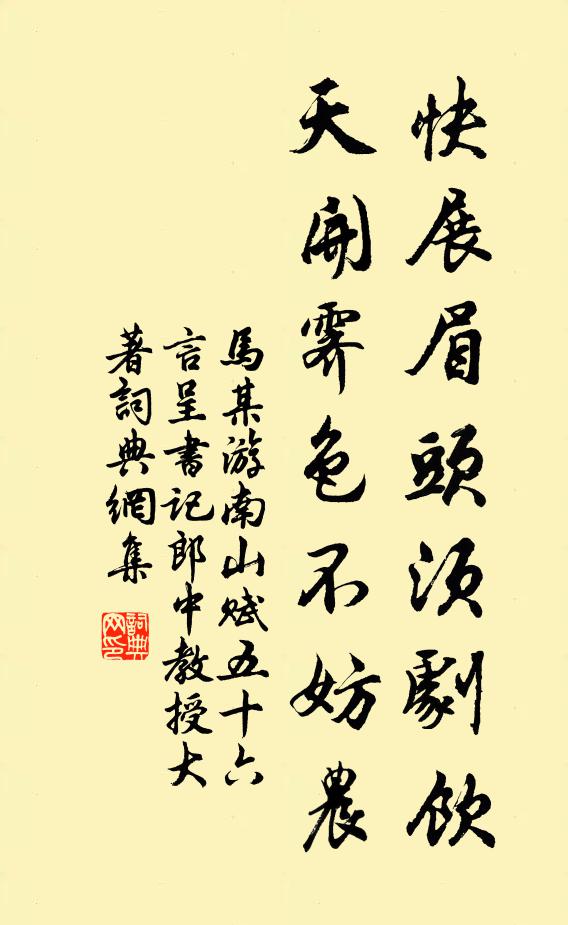 快展眉頭須劇飲
天開霽色不妨農
馬某游南山賦五十六
言呈書记郎中教授大
著詞典網集
詞典
网印